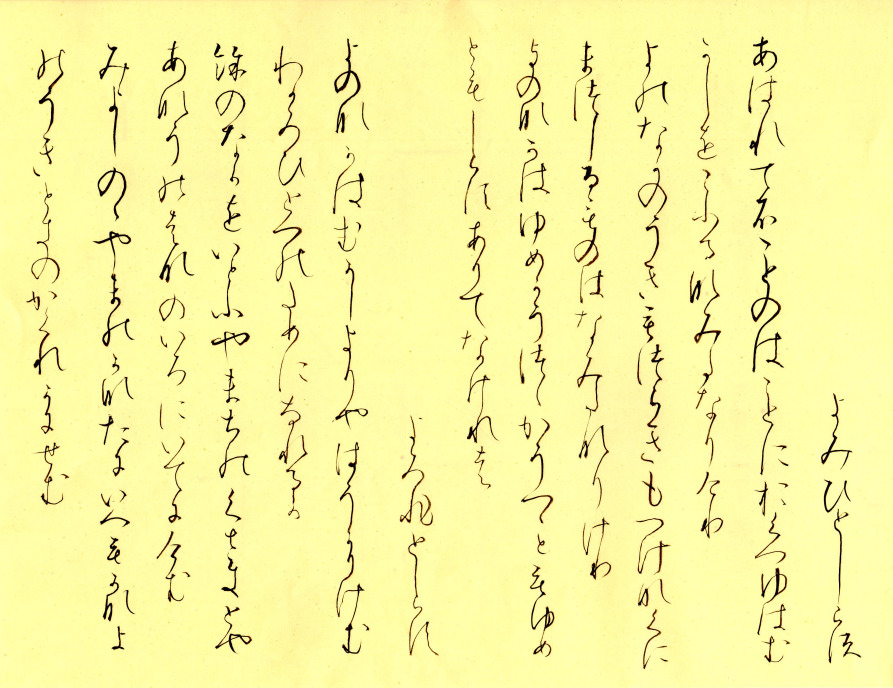 よみひとしらす
あはれてふことのはことにおくつゆはむ
かしをこふるなみたなりけり
よのなかのうきもつらきもつけなくに
まつしるものはなみたなりけり
よのなかはゆめかうつゝかうつゝともゆめ
ともしらすありてなけれは
よみ人しらす
よのなかはむかしよりやはうかりけむ
わかみひとつのためになれるか
よのなかをいとふやまへのくさきとや
あなうのはなのいろにいてにけむ
みよしのゝやまのかなたにいへもかなよ
のうきときのかくれかにせむ